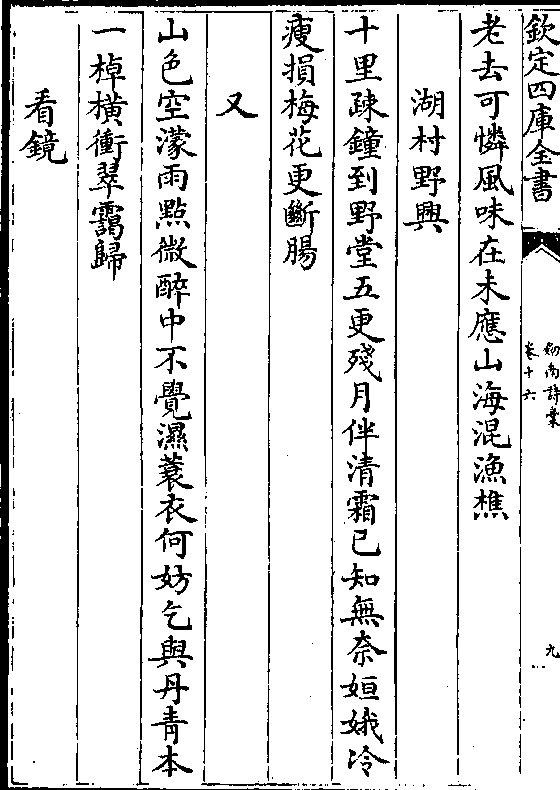 欽定四庫全書
劔南詩稾
卷十六
九
老去可憐風味在未應山海混漁樵
湖村野興
十里疎鐘到野堂五更殘月伴清霜已知無奈姮娥冷
瘦損梅花更斷腸
又
山色空濛雨點微醉中不覺濕蓑衣何妨乞與丹青本
一棹橫衝翠靄歸
看鏡